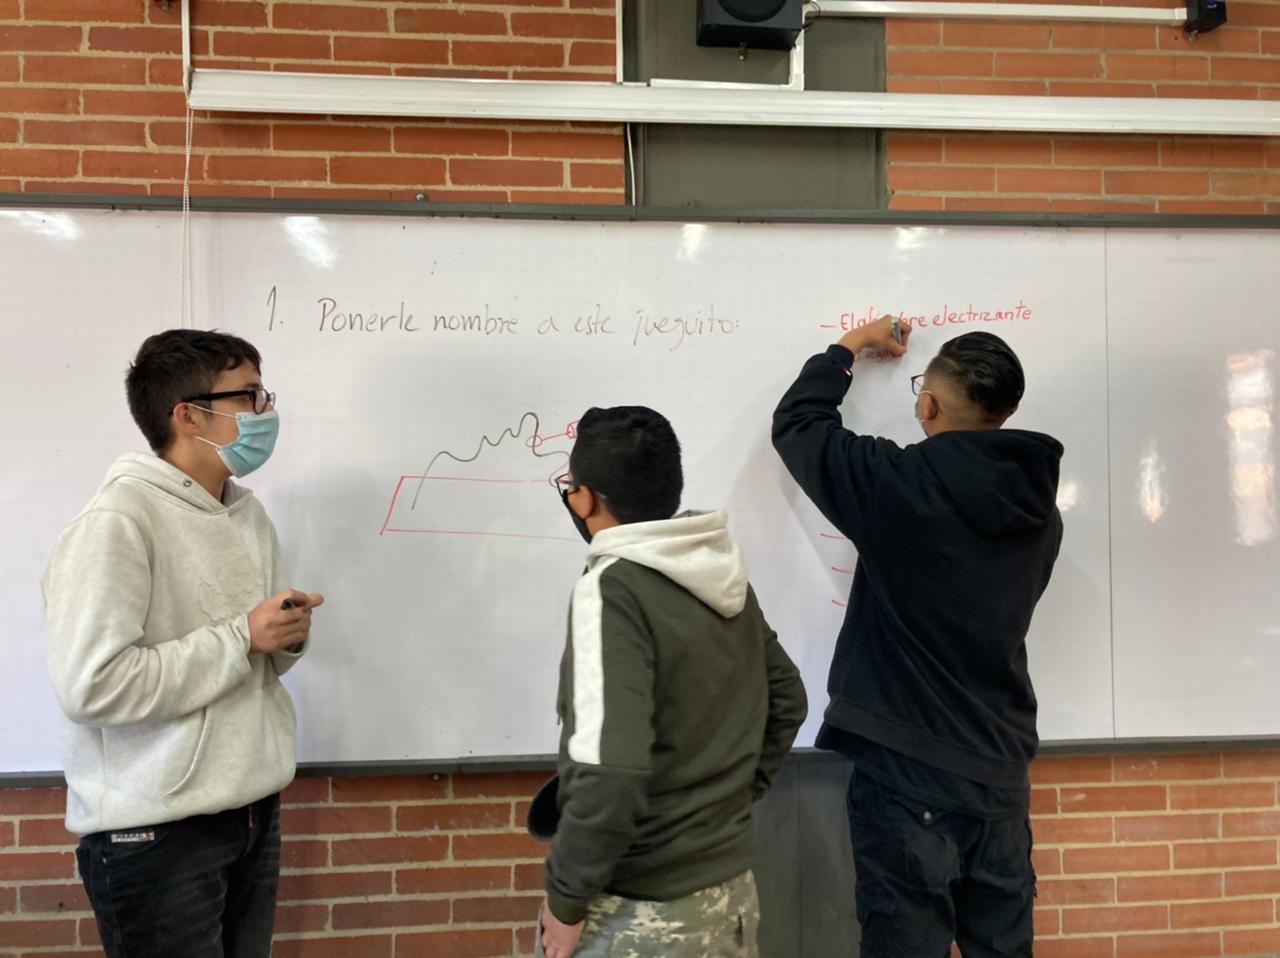 1. Ponerle nombre a este jueguito:
— El electrizante